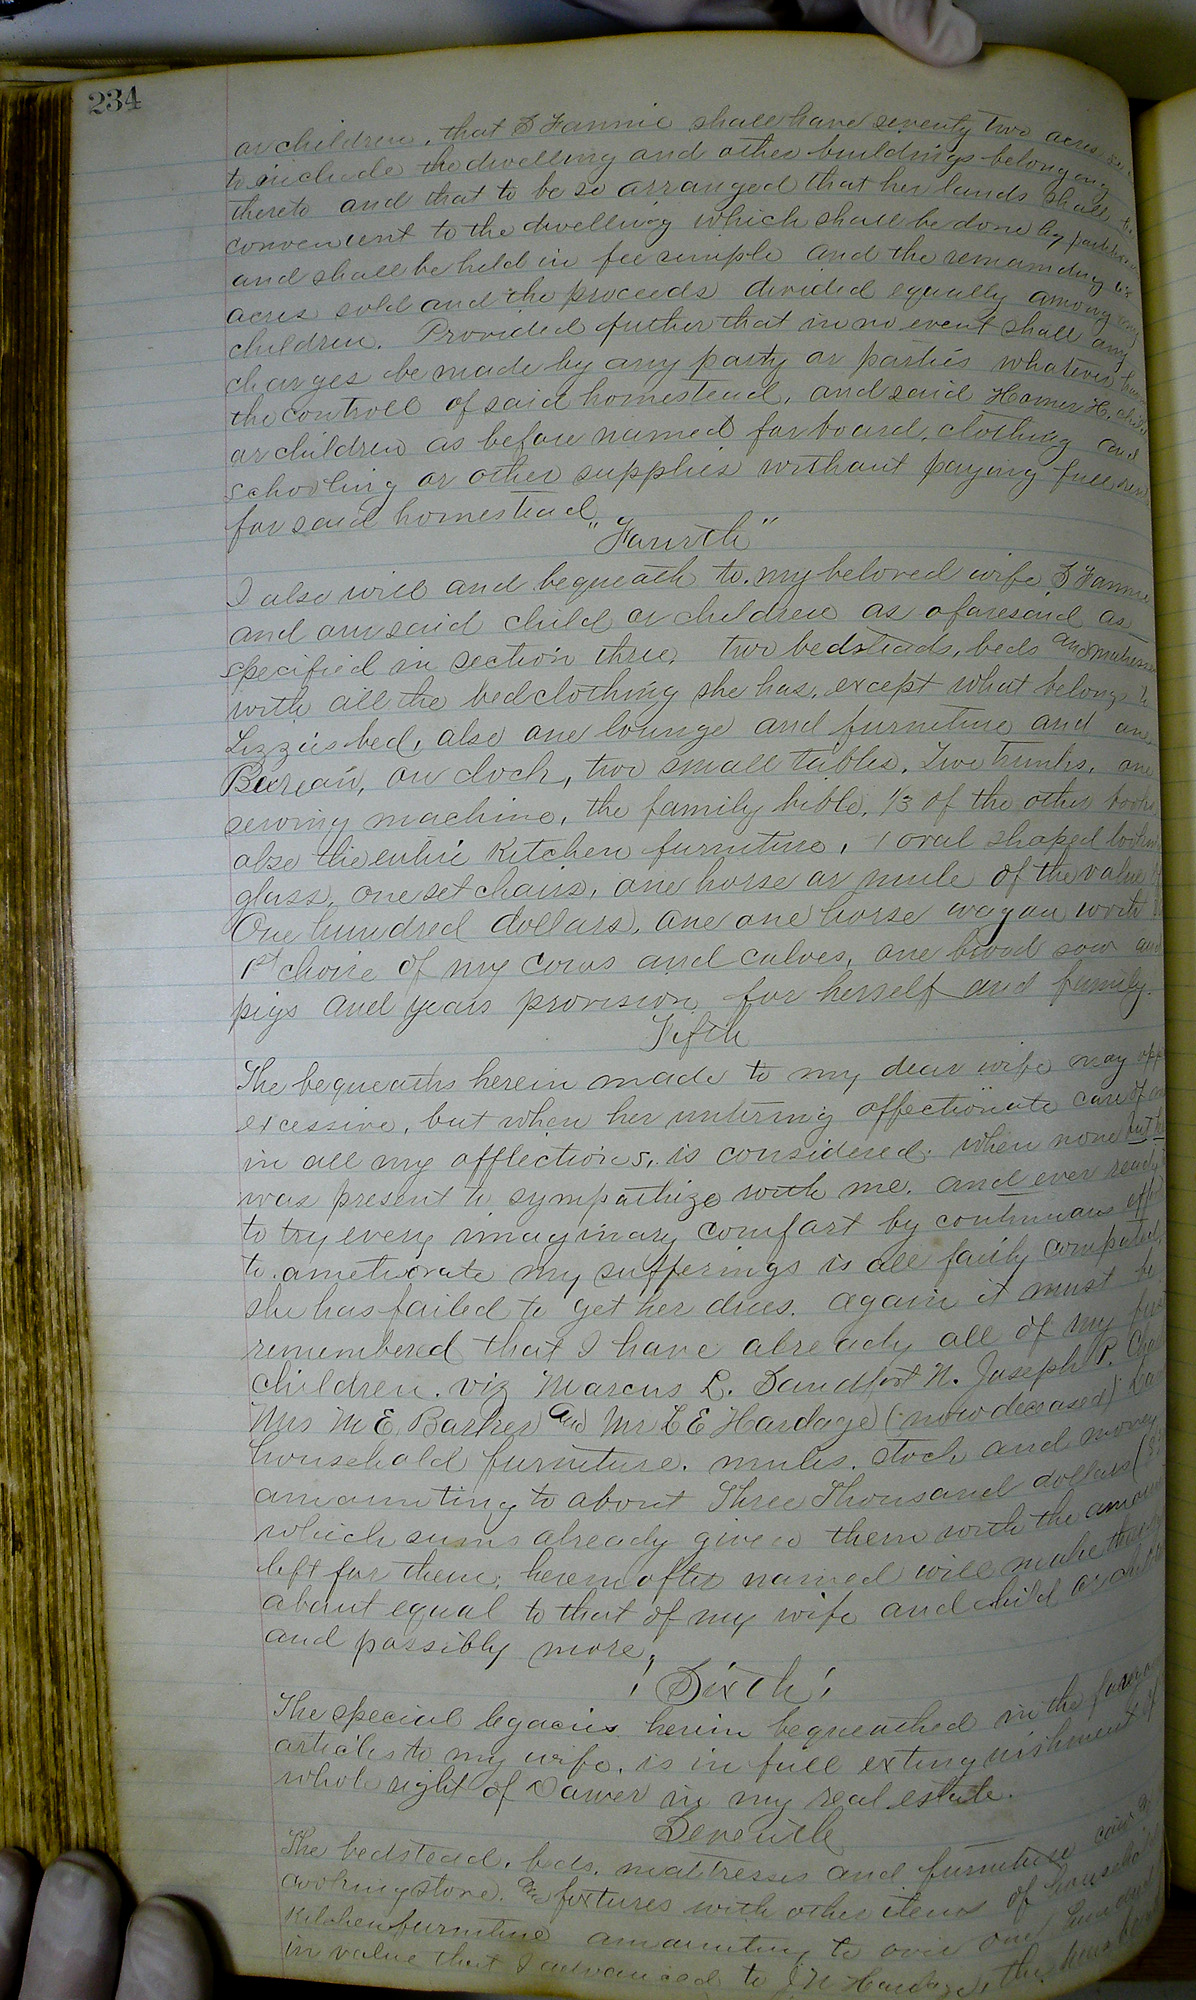 234
or children, that S Fannie shall have seventy two acres
to include the dwelling and other buildings belonging
thereto and that to be so arranged that her lands shall be
convenient to the dwelling which shall be done by
and shall be held in fee simple and the remaining
acres sold and the proceeds divided equally among my
children. Provided futher that in no event shall any
charges be made by any party or parties whatever
the controll of said homestead, and said Homer H. child
or children as before named for board, clothing and
schooling or other supplies without paying full rent
for said homestead
"Fourth"
I also will and bequeath to my beloved wife S Fannie
and our said child or children as aforesaid as
specified in section three, two bedsteads, beds and
with all the bedclothing she has, except what belongs to
Lizzies bed, also one lounge and furniture and one
Bureau, on clock, two small tables, Two trunks, one
sewing machine, the family bible, 1/3 of the other books
also the entire Kitchen furniture, 1 oval shaped
glass, one set chairs, one horse or mule of the value of
One hundred dollars, one one horse wagon worth
1st choice of my cows and calves, one brood sow and
pigs and years provision for herself and family.
Fifth
The bequeaths herein made to my dear wife may
excessive, but when her untiring affectionate care of
in all my afflections, is considered. when none but
was present to sympathize with me. and ever ready
to try every imaginary comfort by continuous
to ameliorate my sufferings is all fairly computed,
she has failed to get her dues. again it must be
remembered that I have already all of my first
children. viz Marcus L. Sandfort N. Joseph P.
Mrs M E. Barker and Mr L E Hardage (now deceased)
household furniture. mules. stock and money
amounting to about Three Thousand dollars
which sums already given them with the amount
left for them, hereinafter named will make
about equal to that of my wife and child or
and possibly more,
"Sixth"
The special legacies herein bequeathed in the
articles to my wife. is in full extinguishment of
whole right of Dower in my real estate.
Seventh
The bedstead, beds, mattresses and furniture
cooking stove, and fixtures with other items of
Kitchen furniture amounting to over one hundred
in value that I advanced to J N Hardage, the